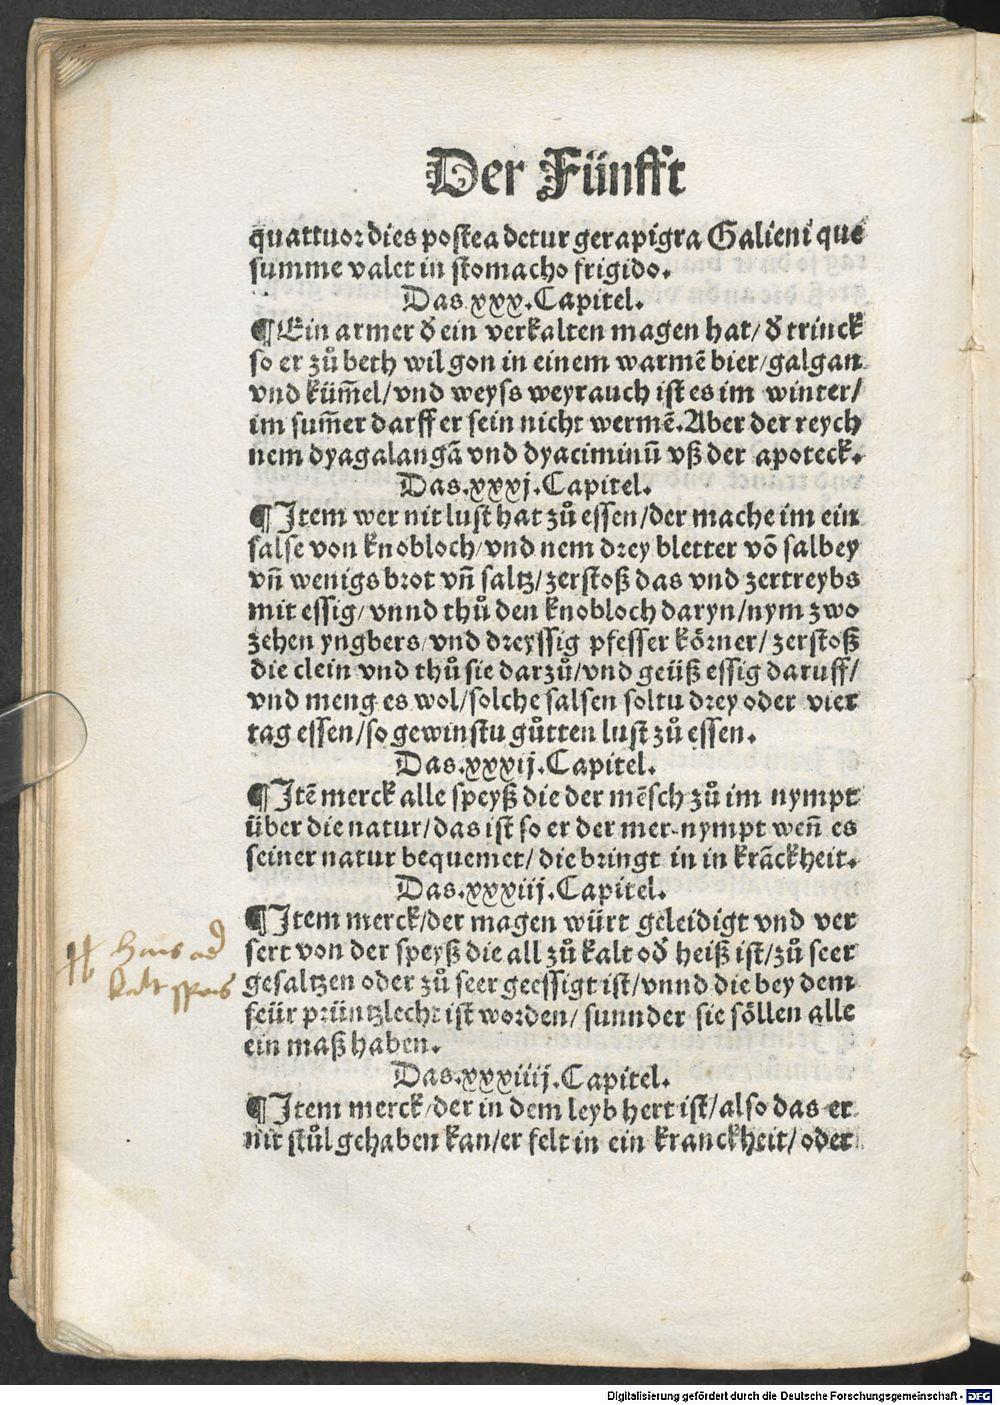 Der Fünfft
quattuor dies postea detur gerapigra Galieni que
summe valet in stomacho frigido.
Das.xxx.Capitel.
¶Ein armer d̕ ein verkalten magen hat/ d̕ trinck
so er zů beth wil gon in einem warmē bier/galgan
vnd küm̄el/vnd weyss weyrauch ist es im winter/
im sum̄er darff er sein nicht wermē.Aber der reych
nem dyagalangā vnd dyaciminū vß der apoteck.
Das.xxxj.Capitel.
¶Item wer nit lust hat zů essen/der mache im ein
salse von knobloch/vnd nem drey bletter vō salbey
vn̄ wenigs brot vn̄ saltz/zerstoß das vnd zertreybs
mit essig/vnnd thů den knobloch daryn/nym zwo
zehen yngbers/vnd dreyssig pfesser körner/zerstoß
die clein vnd thů sie darzů/vnd geüß essig daruff/
vnd meng es wol/solche salsen soltu drey oder vier
tag essen/so gewinstu gůtten lust zů essen.
Das.xxxij.Capitel.
¶Itē merck alle speyß die der mēsch zů im nympt
über die natur/das ist so er der mer nympt wen̄ es
seiner natur bequemet/die bringt in in krāckheit.
Das.xxxiij.Capitel.
¶Item merck/der magen würt geleidigt vnd ver
sert von der speyß die all zů kalt od̕ heiß ist/zů seer
gesaltzen oder zů seer geessigt ist/vnnd die bey dem
feür prüntzlecht ist worden/ sunnder sie söllen alle
ein maß haben.
kalt speis
Das.xxxiiij.Capitel.
¶Item merck/der in dem leyb hert ist/also das er
nit stůl gehaben kan/er felt in ein kranckheit/oder
Digitalisierung gefördert durch die Deutsche Forschungsgemeinschaft - DFG